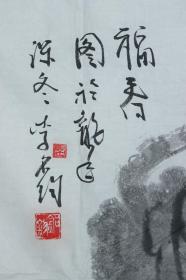 福春
图於龍年
深冬李